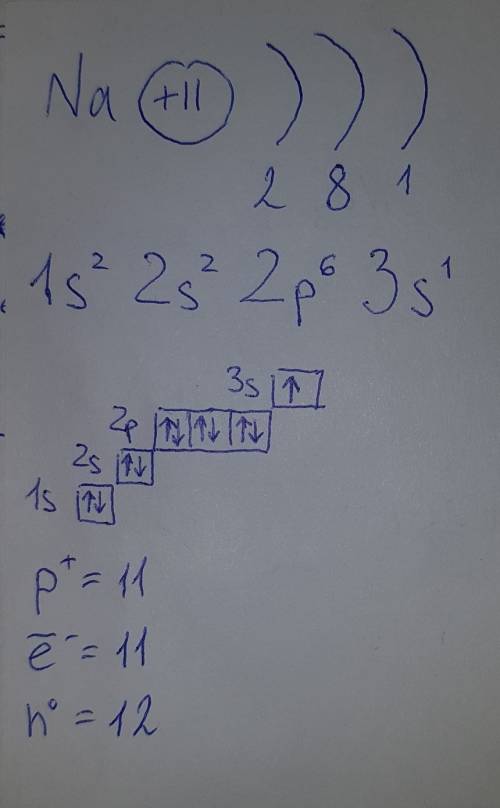 Na +11 ) ) )
2 8 1
1s² 2s² 2p⁶ 3s¹
3s ↑
2p ↑↓ ↑↓ ↑↓
2s ↑↓
1s ↑↓
p⁺ = 11
ē⁻ = 11
n⁰ = 12